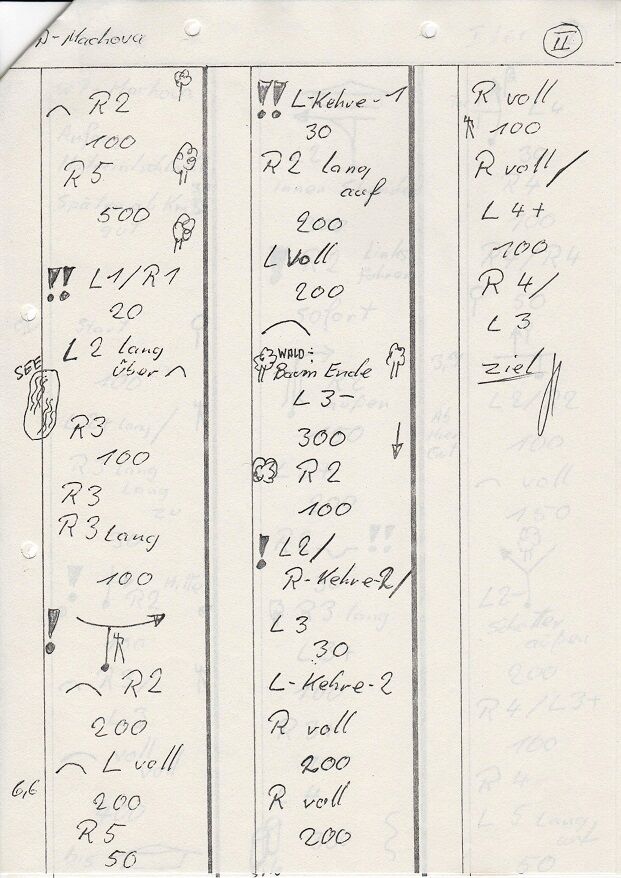 A-Machova
II
R2
100
R5
500
!! L1/R1
20
L2 lang
über
SEE
R3
100
R3
R3 lang
100
!
R2
200
L voll
6,6
200
R5
50
!! L-Kehre-1
30
R2 lang
auf
200
L voll
200
WALD:
Baum Ende
L3-
300
R2
100
! L2/
R-Kehre-2/
L3
30
L-Kehre-2
R voll
200
R voll
200
R voll
100
R voll/
L4+
100
R4/
L3
Ziel